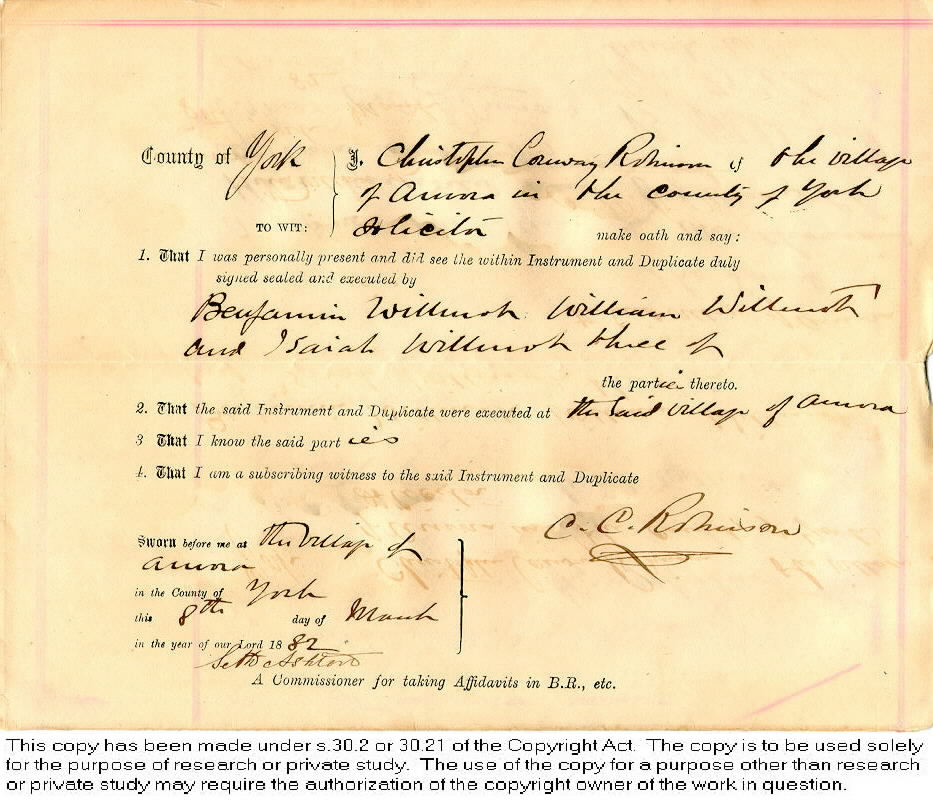 County of York } I, Christopher Conway Robinson of the village
of Aurora in the county of York
TO WIT: Solicitor make oath and say:
1. That I was personally present and did see the within Instrument and Duplicate duly
signed sealed and executed by
Benjamin Willmot William Willmot
and Isaiah Willmot three of
the parties thereto.
2. That the said Instrument and Duplicate were executed at the said village of Aurora
3 That I know the said part ies
4. That I am a subscribing witness to the said Instrument and Duplicate
C. C. Robinson
Sworn before me at the village of
Aurora
in the County of York
this 8th day of March
in the year of our Lord 18 82
Seth Ashton
A Commissioner for taking Affidavits in B.R., etc.
This copy has been made under s.30.2 or 30.21 of the Copyright Act. The copy is to be used solely
for the purpose of research or private study. The use of the copy for a purpose other than research
or private study may require the authorization of the copyright owner of the work in question.